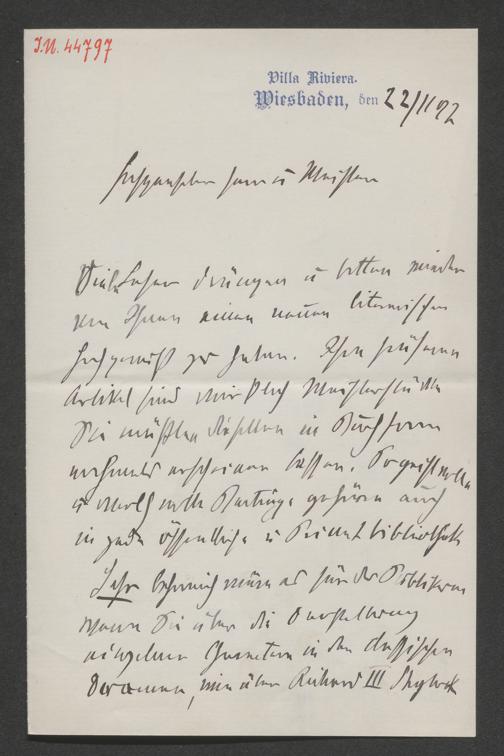 I.N. 44797
Villa Riviera.
Wiesbaden, den 22/11 92
Hochgeehrter Herr u Meister
Viele Leser drängen u bitten wieder
von Ihnen einen neuen literarischen
Hochgenuß zu haben. Ihre früheren
Artikel sind wirklich Meisterstücke
Sie müßten dieselben in Buchform
nochmals erscheinen lassen. So geistvolle
u werthvolle Beiträge gehören auch
in jede öffentliche u Privatbibliothek
Sehr lehrreich wäre es für das Publikum
wenn Sie über die Darstellung
einzelner Charaktere in den classischen
Dramen, wie über Richard III Shylock